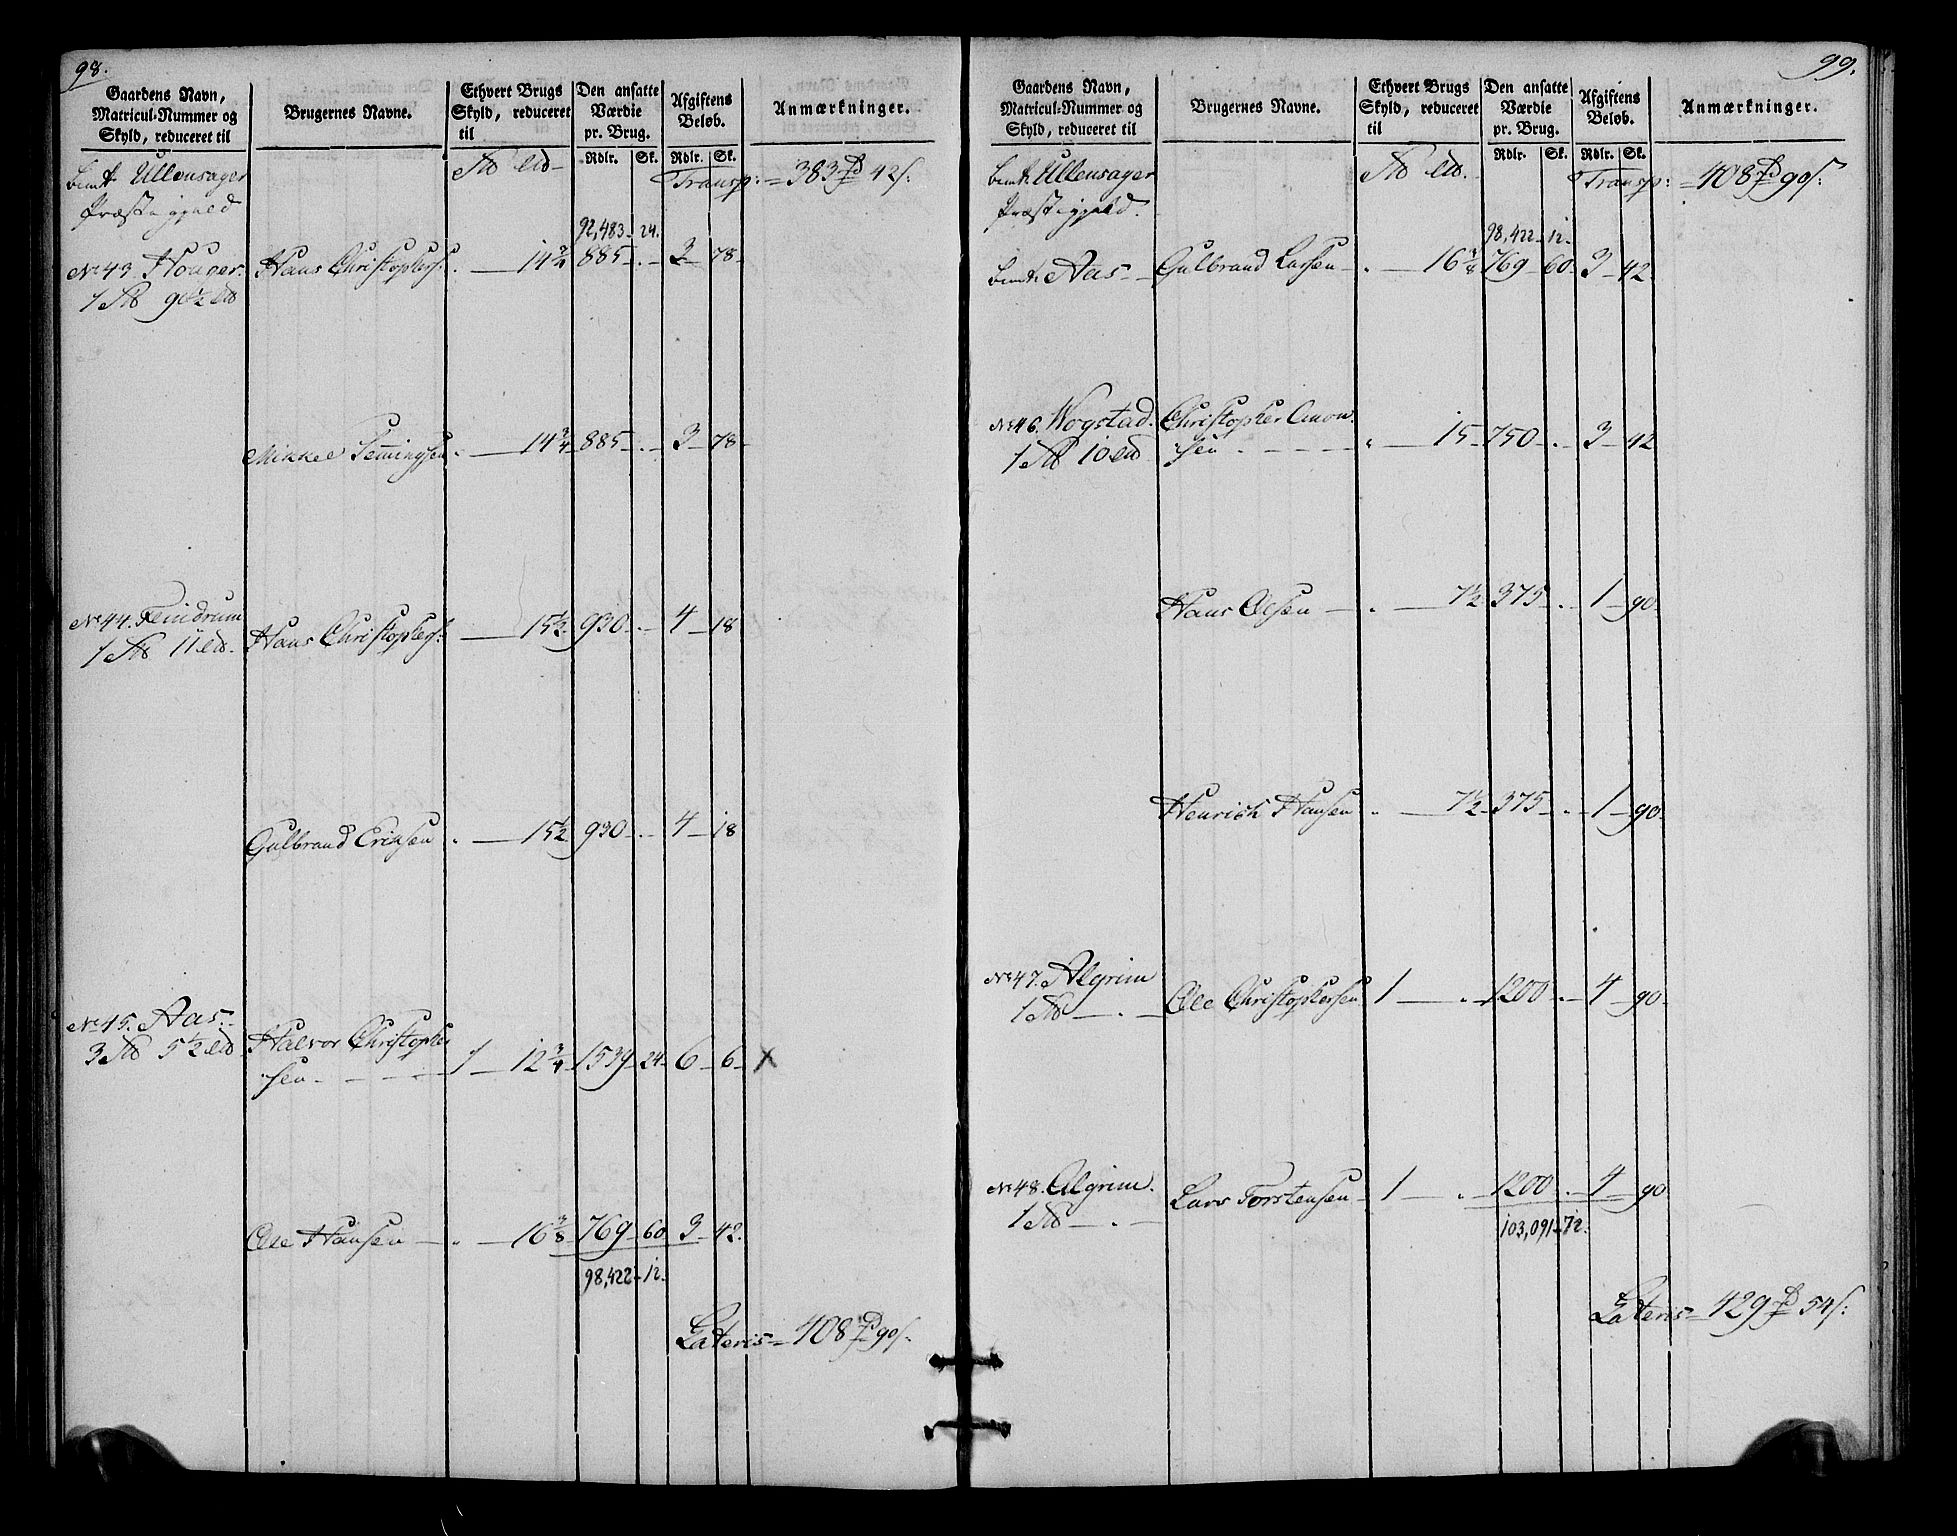 98.
Gaardens Navn, Matricul-Nummer og Skyld, reduceret til | Brugernes Navne. | Ethvert Brugs Skyld, reduceret til | Den ansatte Værdie pr. Brug. Rdlr. Sk. | Afgiftens Beløb. Rdlr. Sk. | Anmærkninger.
Ullensager Transp: = 383 42 s.
Præstegjeld
92,483 - 24.
No 43. Hans Christophers: 14 3/4 885 - . - 3 - 78 -
1 90 1/2
Mikkel 14 3/4 885 - . - 3 - 78 -
No 44.
1 11 Hans Christophers: 15 1/2 930 - . - 4 - 18
Gulbrand Eriksen 15 1/2 930 - . - 4 - 18
No 45. Aas.
3 5 1/2 Halvor Christopher
sen 1 - 12 3/4 1539 - 24 - 6 - 6 - X
Ole Hansen 16 3/8 769 - 60 3 - 42.
98,422 - 12.
Lateris = 408 90 s.
99.
Gaardens Navn, Matricul-Nummer og Skyld, reduceret til | Brugernes Navne. | Ethvert Brugs Skyld, reduceret til | Den ansatte Værdie pr. Brug. Rdlr. Sk. | Afgiftens Beløb. Rdlr. Sk. | Anmærkninger.
Ullensager Transp: = 408 90 s:
Præstegjeld.
98,422 - 12 -
Aas - Gulbrand Larsen 16 3/8 769 - 60 - 3 - 42.
No 46. Wogstad. Christopher Amon
1 10 sen 15 - 750 - . - 3 - 42
Hans Olsen 7 1/2 375 - . - 1 - 90.
Henrich Hansen 7 1/2 375 - . - 1 - 90.
No 47. Algrim
1 Ole Christophersen 1 - 1200 - . - 4 - 90 -
No 48. Algrim.
1 Lars Torstensen 1 - 1200 - . - 4 - 90
103,091 - 72.
Lateris = 429 54 s: